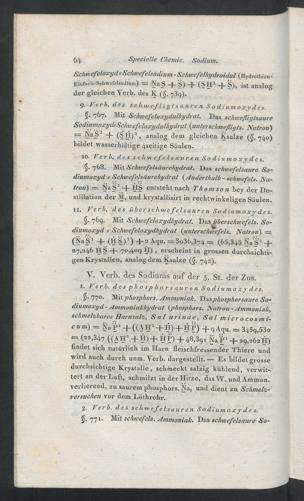 64 Specielle Chemie. Sodium.
Schwefeloxyd-Schwefelsodium-Schwefelhydroidul (Hydrothion-
= NaS + S) + (SH² + S), ist analog
der gleichen Verb. des K (§. 739).
9. Verb. des schwefligtsauren Sodiumoxydes.
§. 767. Mit Schwefeloxydulhydrat. Das schwefligtsaure
Sodiumoxyd-Schwefeloxydulhydrat (unterschwefligts. Natron)
= NaS² + (SH)², analog dem gleichen Ksalze (§. 740)
bildet wasserhältige 4seitige Säulen.
10. Verb. des schwefelsauren Sodiumoxydes.
§. 768. Mit Schwefelsäurehydrat. Das schwefelsaure So-
diumoxyd-Schwefelsäurehydrat (Anderthalb-schwefels. Na-
tron) = NaS² + HS entsteht nach Thomson bey der De-
stillation der M, und krystallisirt in rechtwinkeligen Säulen.
11. Verb. des überschwefelsauren Sodiumoxydes.
§. 769. Mit Schwefeloxydhydrat. Das überschwefels. So-
diumoxyd-Schwefeloxydhydrat (unterschwefels. Natron) =
(NaS³ + (HS)³) + 2 Aqu. = 3036,374 = (65,345 NaS³ +
27,246 HS + 7,409 H), erscheint in grossen durchsichti-
gen Krystallen, analog dem Ksalze (§. 742).
V. Verb. des Sodiums auf der 5. St. der Zus.
1. Verb. des phosphorsauren Sodiumoxydes.
§. 770. Mit phosphors. Ammoniak. Das phosphorsaure So-
diumoxyd-Ammoniakhydrat (phosphors. Natron-Ammoniak,
schmelzbares Harnsalz, Sal urinae, Sal microcosmi-
cum) = NaP² + ((AH³ + H) + HP) + 9 Aqu. = 3459,530
findet sich natürlich im Harn fleischfressender Thiere und
wird auch durch unm. Verb. dargestellt. — Es bildet grosse
durchsichtige Krystalle, schmeckt salzig kühlend, verwit-
tert an der Luft, schmilzt in der Hitze, das W. und Ammon.
verlierend, zu saurem phosphors. Na, und dient zu Schmelz-
versuchen vor dem Löthrohr.
2. Verb. des schwefelsauren Sodiumoxydes.
§. 771. Mit schwefels. Ammoniak. Das schwefelsaure So-